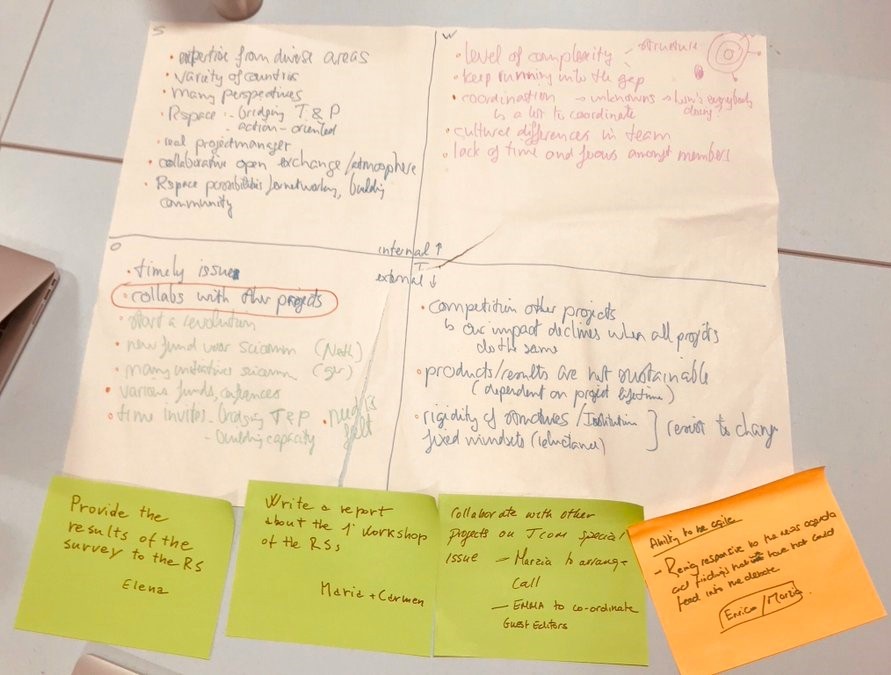 S
• expertise from diverse areas
• variety of countries
• many perspectives
• Rspace - bridging T & P
- action-oriented
• real projectmanager
• collaborative open exchange/atmosphere
• Rspace possibilities for networking, building
community
W
• level of complexity - structure
• keep running into the gap
• coordination → unknowns → how's everybody doing?
↳ a lot to coordinate
• cultural differences in team
• lack of time and focus amongst members
internal ↑
external ↓
O
• timely issue
• collabs with other projects
• start a revolution
• new fund voor scicomm (Neth)
• many initiatives scicomm
• various funds, conferences
• time invites - bridging T & P
- building capacity
need is
felt
T
• competition other projects
↳ our impact declines when all projects
do the same
• products/results are not sustainable
(dependent on project lifetime)
• rigidity of structures/Institution
fixed mindsets (reluctance)
] resist to change
Provide the
results of the
survey to the RS
Elena
Write a report
about the 1° workshop
of the RSs
Maria + Carmen
Collaborate with other
projects on Jcom special
issue - Marzia to arrange
call
- EMMA to co-ordinate
Guest Editors
Ability to be agile
- Being responsive to the news agenda
and findings that we have that could
feed into the debate
Enrico/Marzia